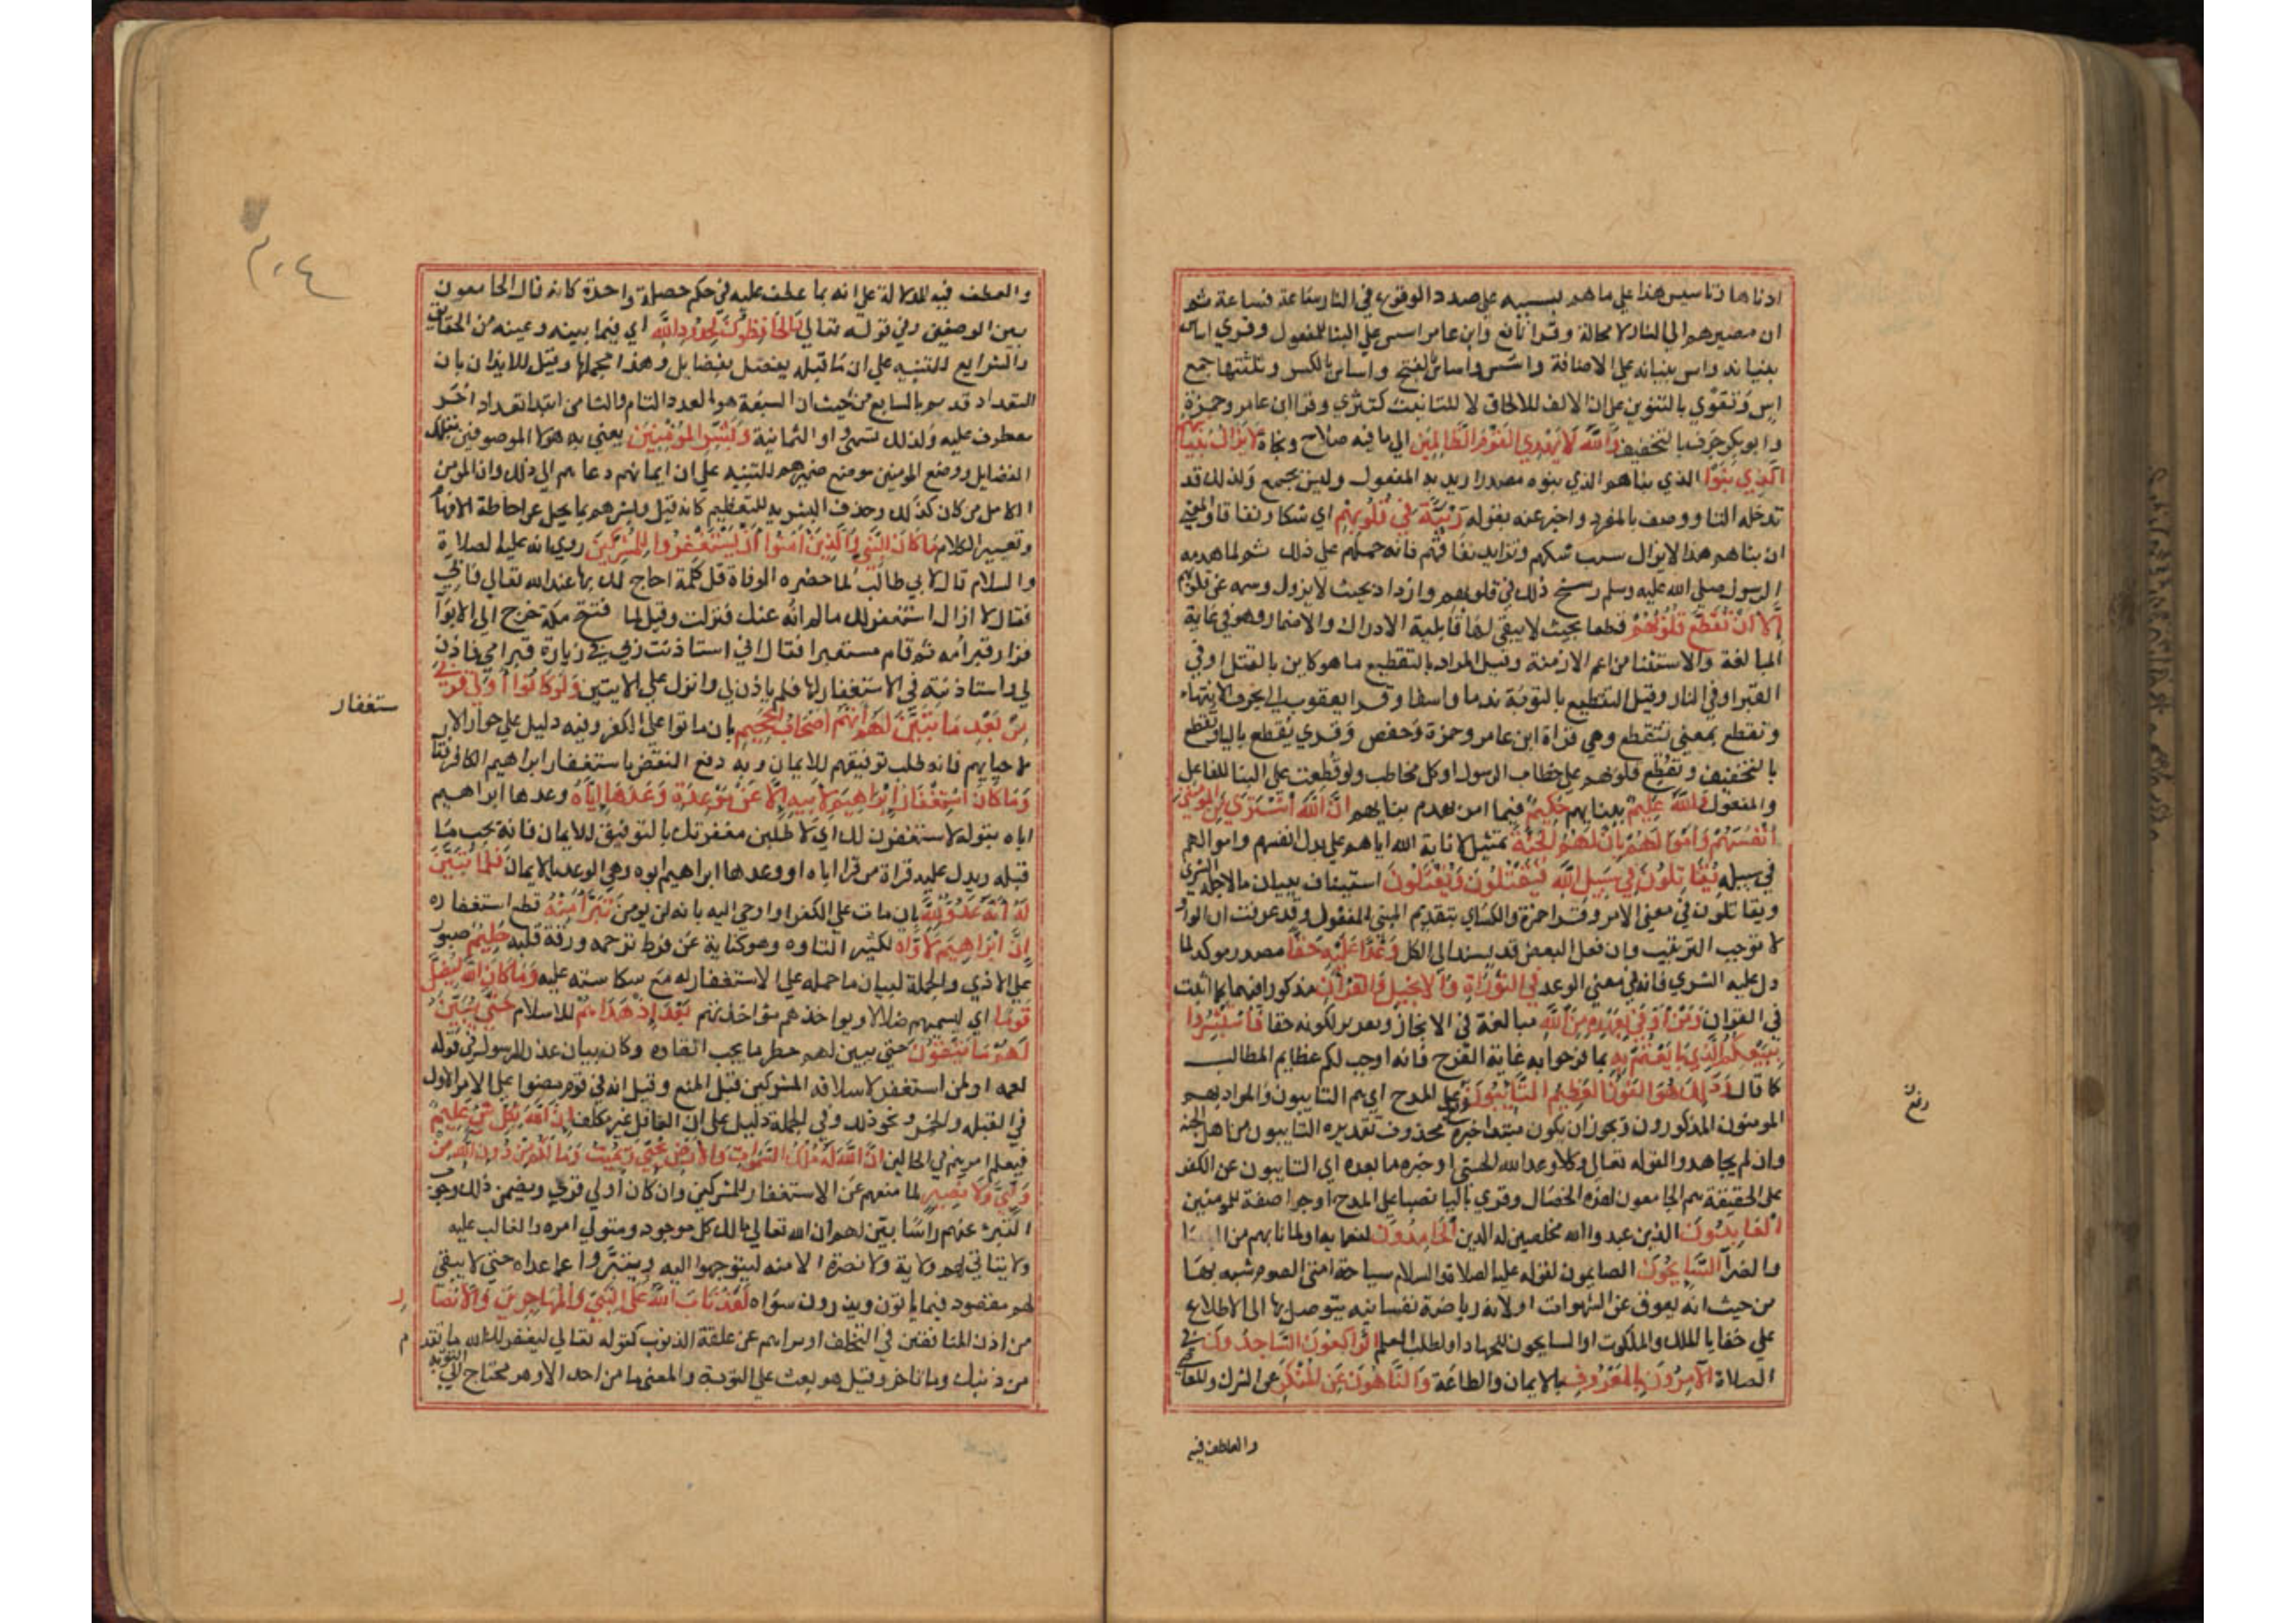 ادناها وتاسيس هذا علي ما هم بسببه علي صدد الوقوع في النار ساعة فساعة ثم
ان مصيرهم الي النار لا محالة وقرا نافع وابن عامر اسس علي البنا للمفعول وقري اساس
بنيانه واس بنيانه علي الاضافة واسس واساس بالفتح واساس بالكسر وثلثتها جمع
اس وتقوي بالتنوين علي ان الالف للالحاق لا للتانيث كتترى وقرا ابن عامر وحمزة
وابو بكر جرف بالتخفيف وَاللَّه لَا يَهْدِي القَوْمَ الظَّالِمِينَ الي ما فيه صلاح ونجاة لا يَزَالُ بُنْيَانُهُم
الَّذِي بَنَوْا الذي بناهم الذي بنوه مصدر اريد به المفعول وليس بجمع ولذلك قد
تدخله التا ووصف بالمفرد واخبر عنه بقوله رِيْبَةً فِي قُلُوبِهِمْ اي شكا ونفاقا والمعني
ان بناهم هذا لا يزال سبب شكهم وتزايد نفاقهم فانه حملهم علي ذلك ثم لما هدمه
الرسول صلي الله عليه وسلم رسخ ذلك في قلوبهم وازداد بحيث لا يزول وسمه عن قلوبهم
إِلَّا أَنْ تُقَطَّعَ قُلُوبُهُمْ قطعا بحيث لا يبقي لها قابلية الادراك والاضمار وهو في غاية
المبالغة والاستثنا من اعم الازمنة وقيل المراد بالتقطيع ما هو كاين بالقتل او في
القبر او في النار وقيل التقطيع بالتوبة ندما واسفا وقرا يعقوب الي بحرف الانتهاء
وتقطع بمعني تتقطع وهي قراة ابن عامر وحمزة وحفص وقري يقطع باليا وتقطع
بالتخفيف وتقطع قلوبهم علي خطاب الرسول او كل مخاطب ولو قطعت علي البنا للفاعل
والمفعول وَاللَّهُ عَلِيمٌ بنياتهم حَكِيمٌ فيما امر بهدم بنايهم انَّ اللَّهَ اشْتَرَى مِنَ المُؤمِنِينَ
أنْفُسَهُمْ وَأَمْوَالَهُمْ بِأَنَّ لَهُمُ الجَنَّةَ تمثيل لاثابة الله اياهم علي بذل انفسهم واموالهم
في سبيله يُقَاتِلُونَ فِي سَبِيلِ اللَّهِ فَيَقْتُلُونَ وَيُقْتَلُونَ استيناف ببيان ما لاجله الشري
ويقاتلون في معني الامر وقرا حمزة والكساي بتقديم المبني للمفعول وقد عرفت ان الواو
لا توجب الترتيب وان فعل البعض قد يسند الي الكل وَعْدًا عَلَيْهِ حَقًّا مصدر موكد لما
دل عليه الشري فانه في معني الوعد فِي التَّوْرَاةِ وَالاِنْجِيلِ وَالقُرْآنِ مذكورا فيهما كما اثبت
في القران وَمَنْ أَوْفَى بِعَهْدِهِ مِنَ اللَّهِ مبالغة في الانجاز وتقرير لكونه حقا فَاسْتَبْشِرُوا
بِبَيْعِكُمُ الَّذِي بَايَعْتُمْ بِهِ بما فرحوا به غاية الفرح فانه اوجب لكم عظايم المطالب
كما قال وَذَلِكَ هُوَ الفَوْزُ العَظِيمُ التَّايِبُونَ علي المدح اي هم التايبون والمراد بهم
رفع
المومنون المذكورون ويجوز ان يكون مبتدا خبره محذوف تقديره التايبون من اهل الجنه
وان لم يجاهدوا لقوله تعالي وكلا وعد الله الحسني او خبره ما بعده اي التايبون عن الكفر
علي الحقيقة هم الجامعون لهذه الخصال وقري باليا نصبا علي المدح او جرا صفة للمومنين
الْعَابِدُونَ الذين عبدوا الله مخلصين له الدين الحَامِدُونَ لنعمايه او لما نابهم من السرا
والضرا السَّايِحُونَ الصايمون لقوله عليه الصلاة والسلام سياحة امتي الصوم شبه بها
من حيث انه يعوق عن الشهوات او لانه رياضة نفسانيه يتوصل بها الي الاطلاع
علي خفايا الملك والملكوت او السايحون للجهاد او لطلب العلم الرَّاكِعُونَ السَّاجِدُونَ في
الصلاة الآمِرُونَ بِالمَعْرُوفِ بالايمان والطاعة وَالنَّاهُونَ عَنِ المُنْكَرِ عن الشرك والمعاصي
والعاطف فيه
٢٠٤
والعطف فيه للدلالة علي انه بما عطف عليه في حكم خصلة واحدة كانه قال الجامعون
بين الوصفين وفي قوله تعالي وَالحَافِظُونَ لِحُدُودِ اللَّهِ اي فيما بينه وعينه من الحقايق
والشرايع للتنبيه علي ان ما قبله مفصل الفضايل وهذا مجملها وقيل للايذان بان
التعداد قد تم بالسابع من حيث ان السبعة هو العدد التام والثامن ابتدا تعداد اخر
معطوف عليه ولذلك تسمي واو الثمانية وَبَشِّرِ المُؤْمِنِينَ يعني به هولا الموصوفين بتلك
الفضايل ووضع المومنين موضع ضميرهم للتنبيه علي ان ايمانهم دعاهم الي ذلك وان المومن
الكامل من كان كذلك وحذف المبشر به للتعظيم كانه قيل وبشرهم بما يجل عن احاطة الافهام
وتعبير الكلام مَا كَانَ لِلنَّبِيِّ وَالَّذِينَ آمَنُوا أَنْ يَسْتَغْفِرُوا لِلْمُشْرِكِينَ روي انه عليه الصلاة
والسلام قال لابي طالب لما حضره الوفاة قل كلمة احاج لك بها عند الله تعالي فابي
فقال لا ازال استغفر لك ما لم انه عنك فنزلت وقيل لما فتح مكة خرج الي الابوا
فزار قبر امه ثم قام مستعبرا فقال اني استاذنت ربي في زيارة قبر امي فاذن
لي واستاذنته في الاستغفار لها فلم ياذن لي وانزل علي الايتين وَلَوْ كَانُوا أُولِي قُرْبَى
مِنْ بَعْدِ مَا تَبَيَّنَ لَهُمْ أَنَّهُمْ أَصْحَابُ الجَحِيمِ بان ماتوا علي الكفر وفيه دليل علي جواز الا
ستغفار
لاحيايهم فانه طلب توفيقهم للايمان وبه دفع النقض باستغفار ابراهيم لابيه الكافر فقال
وَمَا كَانَ اسْتِغْفَارُ إِبْرَاهِيمَ لِأَبِيهِ إِلَّا عَنْ مَوْعِدَةٍ وَعَدَهَا إِيَّاهُ وعدها ابراهيم
اباه بقوله لاستغفرن لك اي لاطلبن مغفرتك بالتوفيق للايمان فانه يجب ما
قبله ويدل عليه قراة من قرا اباه او وعدها ابراهيم ابوه وهي الوعد بالايمان فَلَمَّا تَبَيَّنَ
لَهُ أَنَّهُ عَدُوٌّ لِلَّهِ بان مات علي الكفر او اوحي اليه بانه لن يومن تَبَرَّأَ مِنْهُ قطع استغفاره
إِنَّ ابْرَاهِيمَ لَأَوَّاهٌ لكثير التاوه وهو كناية عن فرط ترحمه ورقة قلبه حَلِيمٌ صبور
علي الاذي والجملة لبيان ما حمله علي الاستغفار له مع شكاسته عليه وَمَا كَانَ اللَّهُ لِيُضِلَّ
قَوْمًا اي ليسميهم ضلالا ويواخذهم مؤاخذتهم بَعْدَ إِذْ هَدَاهُمْ للاسلام حَتَّى يُبَيِّنَ
لَهُمْ مَا يَتَّقُونَ حتي يبين لهم خطر ما يجب اتقاوه وكانه بيان عذر للرسول في قوله
لعمه او لمن استغفر لاسلافه المشركين قبل المنع وقيل انه في قوم مضوا علي الامر الاول
في القبله والخمر ونحو ذلك وفي الجملة دليل علي ان الغافل غير مكلف إِنَّ اللَّهَ بِكُلِّ شَيْءٍ عَلِيمٌ
فيعلم امرهم في الحالين انَّ اللَّهَ لَهُ مُلْكُ السَّمَوَاتِ وَالأَرْضِ يُحْيِي وَيُمِيتُ وَمَا لَكُمْ مِنْ دُونِ اللَّهِ مِنْ
وَلِيٍّ وَلَا نَصِيرٍ لما منعهم عن الاستغفار للمشركين وان كان اولي قربي ويضمن ذلك وجوب
التبرء عنهم راسا بين لهم ان الله تعالي مالك كل موجود ومتولي امره والغالب عليه
ولا يتاتي لهم ولاية ولا نصرة الا منه ليتوجهوا اليه ويتبرؤا عما عداه حتي لا يبقي
لهم مقصود فيما ياتون ويذرون سواه لَقَدْ تَابَ اللَّهُ عَلَى النَّبِيِّ وَالمُهَاجِرِينَ وَالأَنْصَا
ر
من اذن المنافقين في التخلف او براهم عن علقة الذنوب كقوله تعالي ليغفر لك الله ما تقد
م
من ذنبك وما تاخر وقيل هو بعث علي التوبة والمعني ما من احد الا وهو محتاج الي التوبة